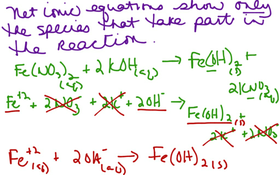 Net ionic equations show only
the species that take part in
the Reaction.
Fe(NO3)2 (aq) + 2 KOH (aq) → Fe(OH)2 (s) +
2KNO3 (aq)
Fe+2 + 2NO3- + 2K+ + 2OH- → Fe(OH)2 ↓ +
2K+ + 2NO3-
Fe+2 (aq) + 2OH- (aq) → Fe(OH)2 (s)